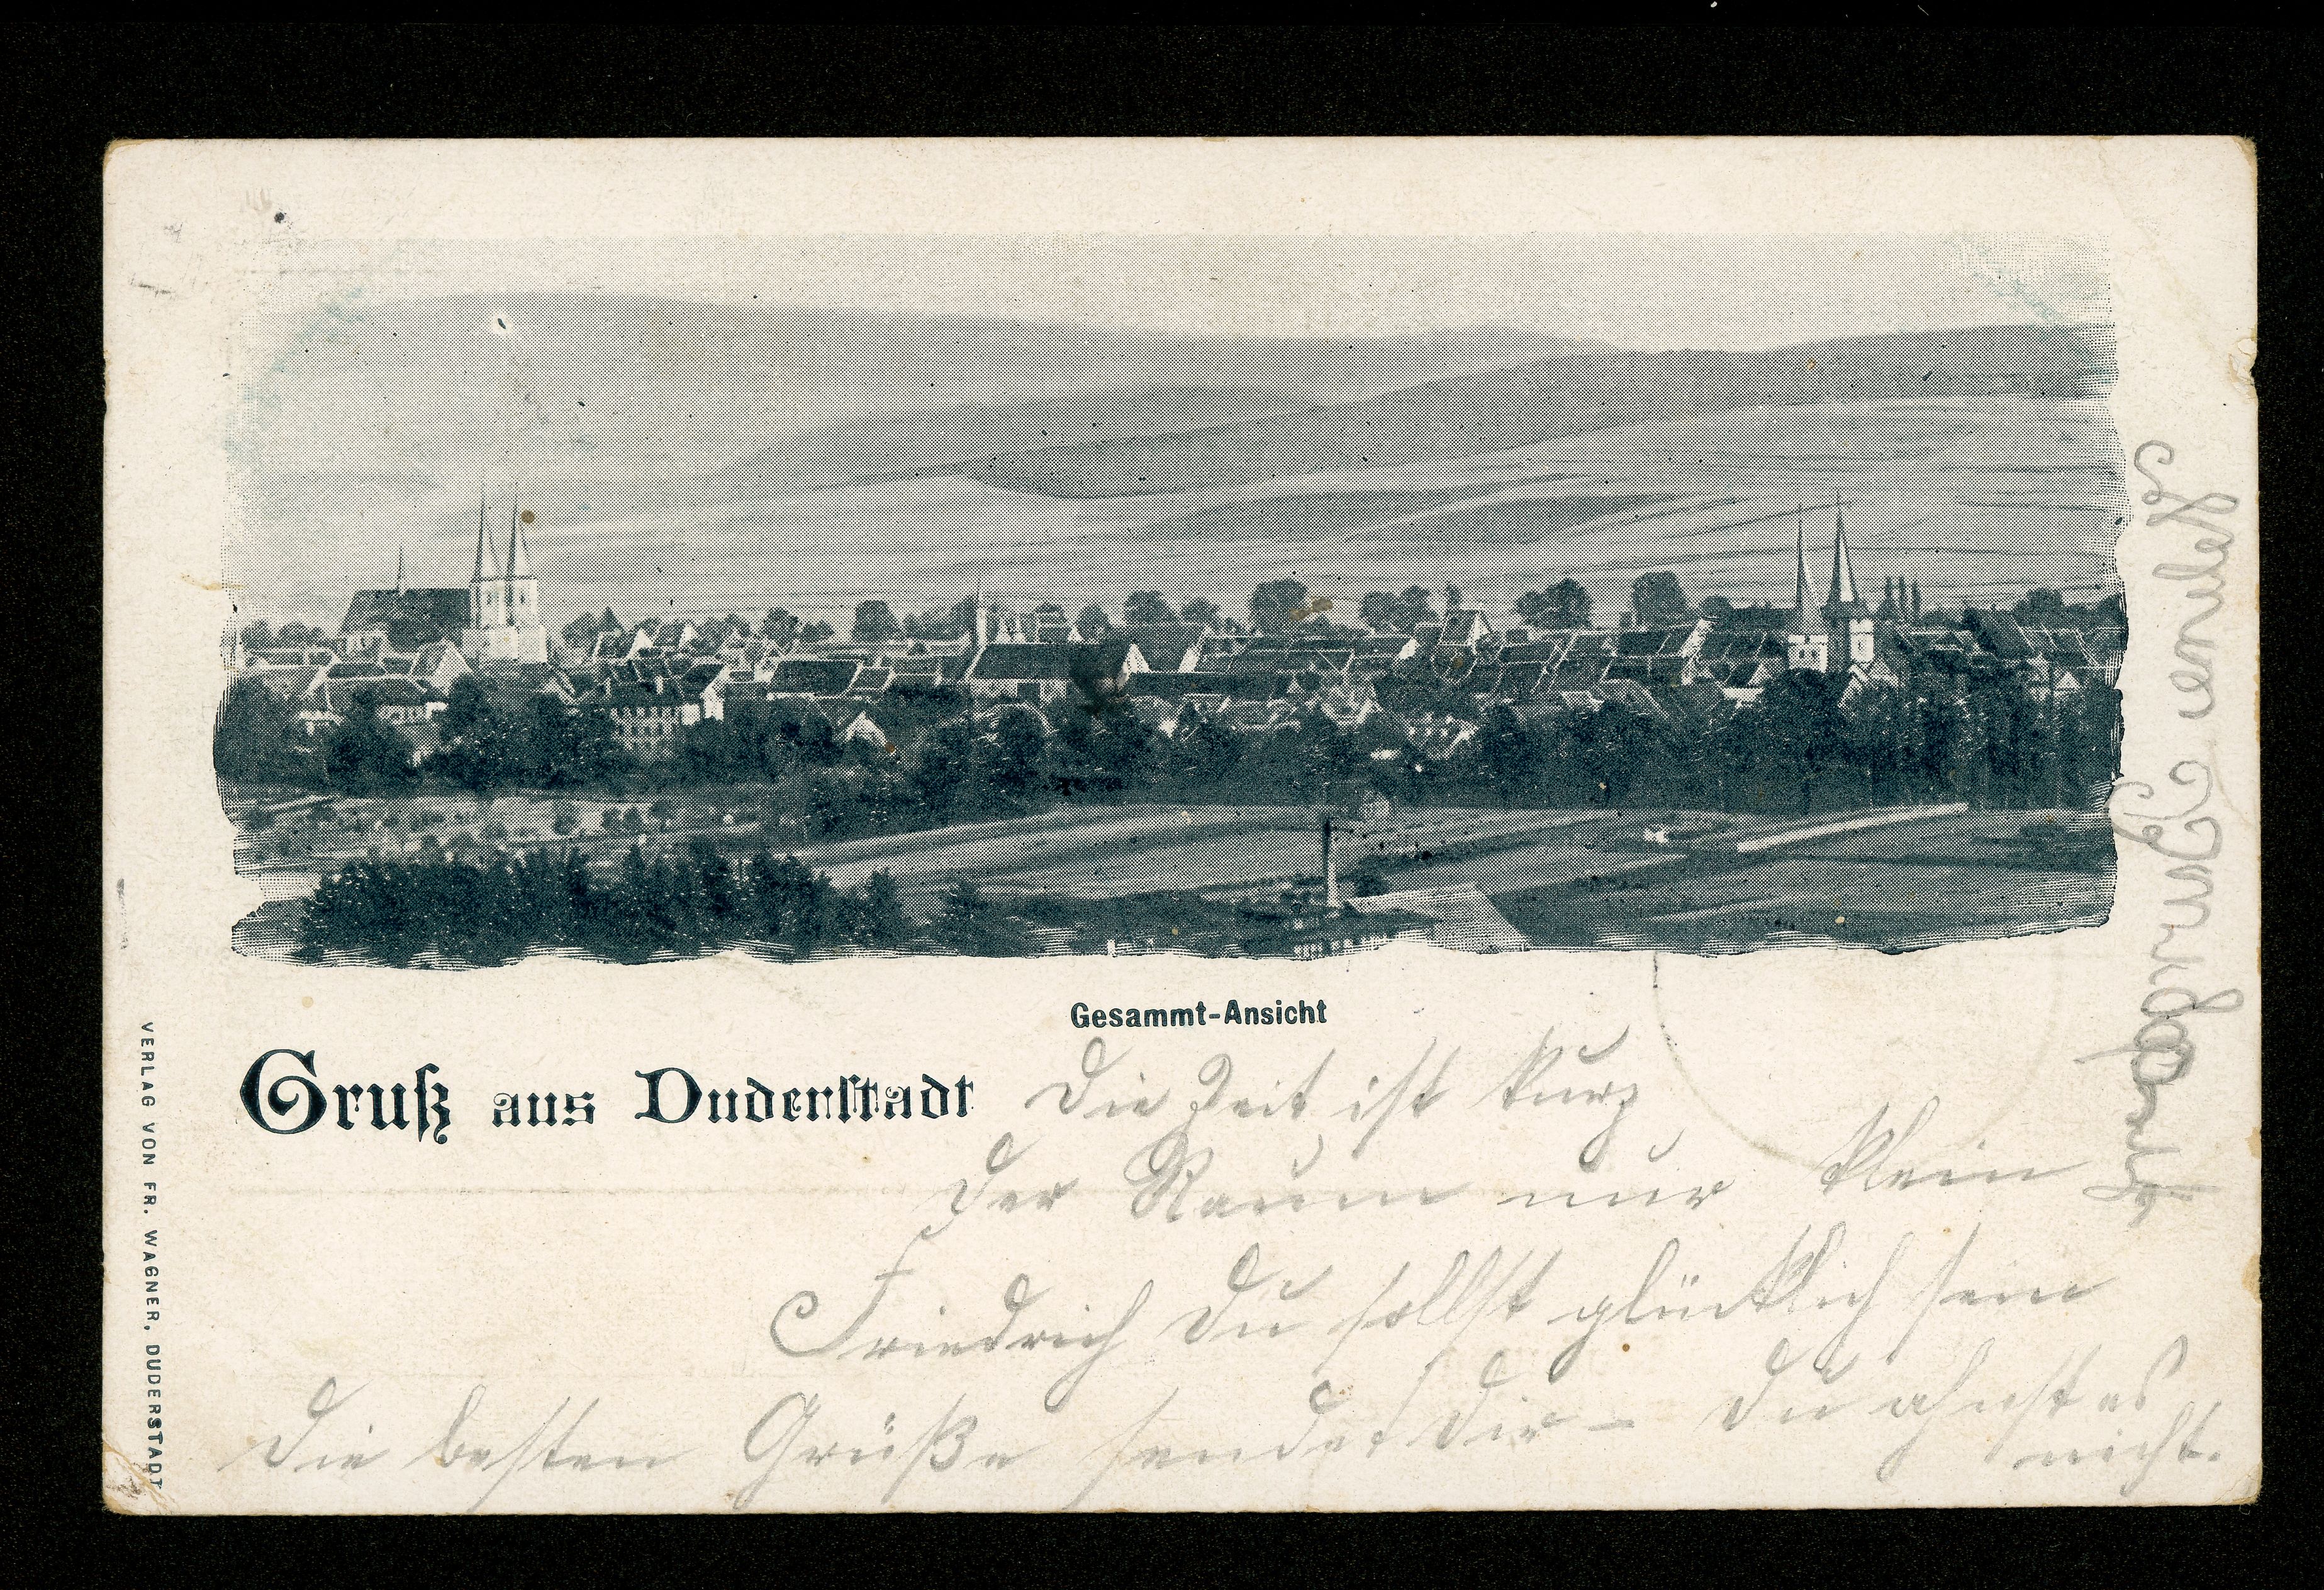 Gesammt-Ansicht
Gruß aus Duderstadt
Die Zeit ist kurz
Der Raum nur klein
Friedrich Du sollst glücklich sein
Die besten Grüße sendet Dir – Du ahnst es
nicht.
VERLAG VON FR. WAGNER, DUDERSTADT